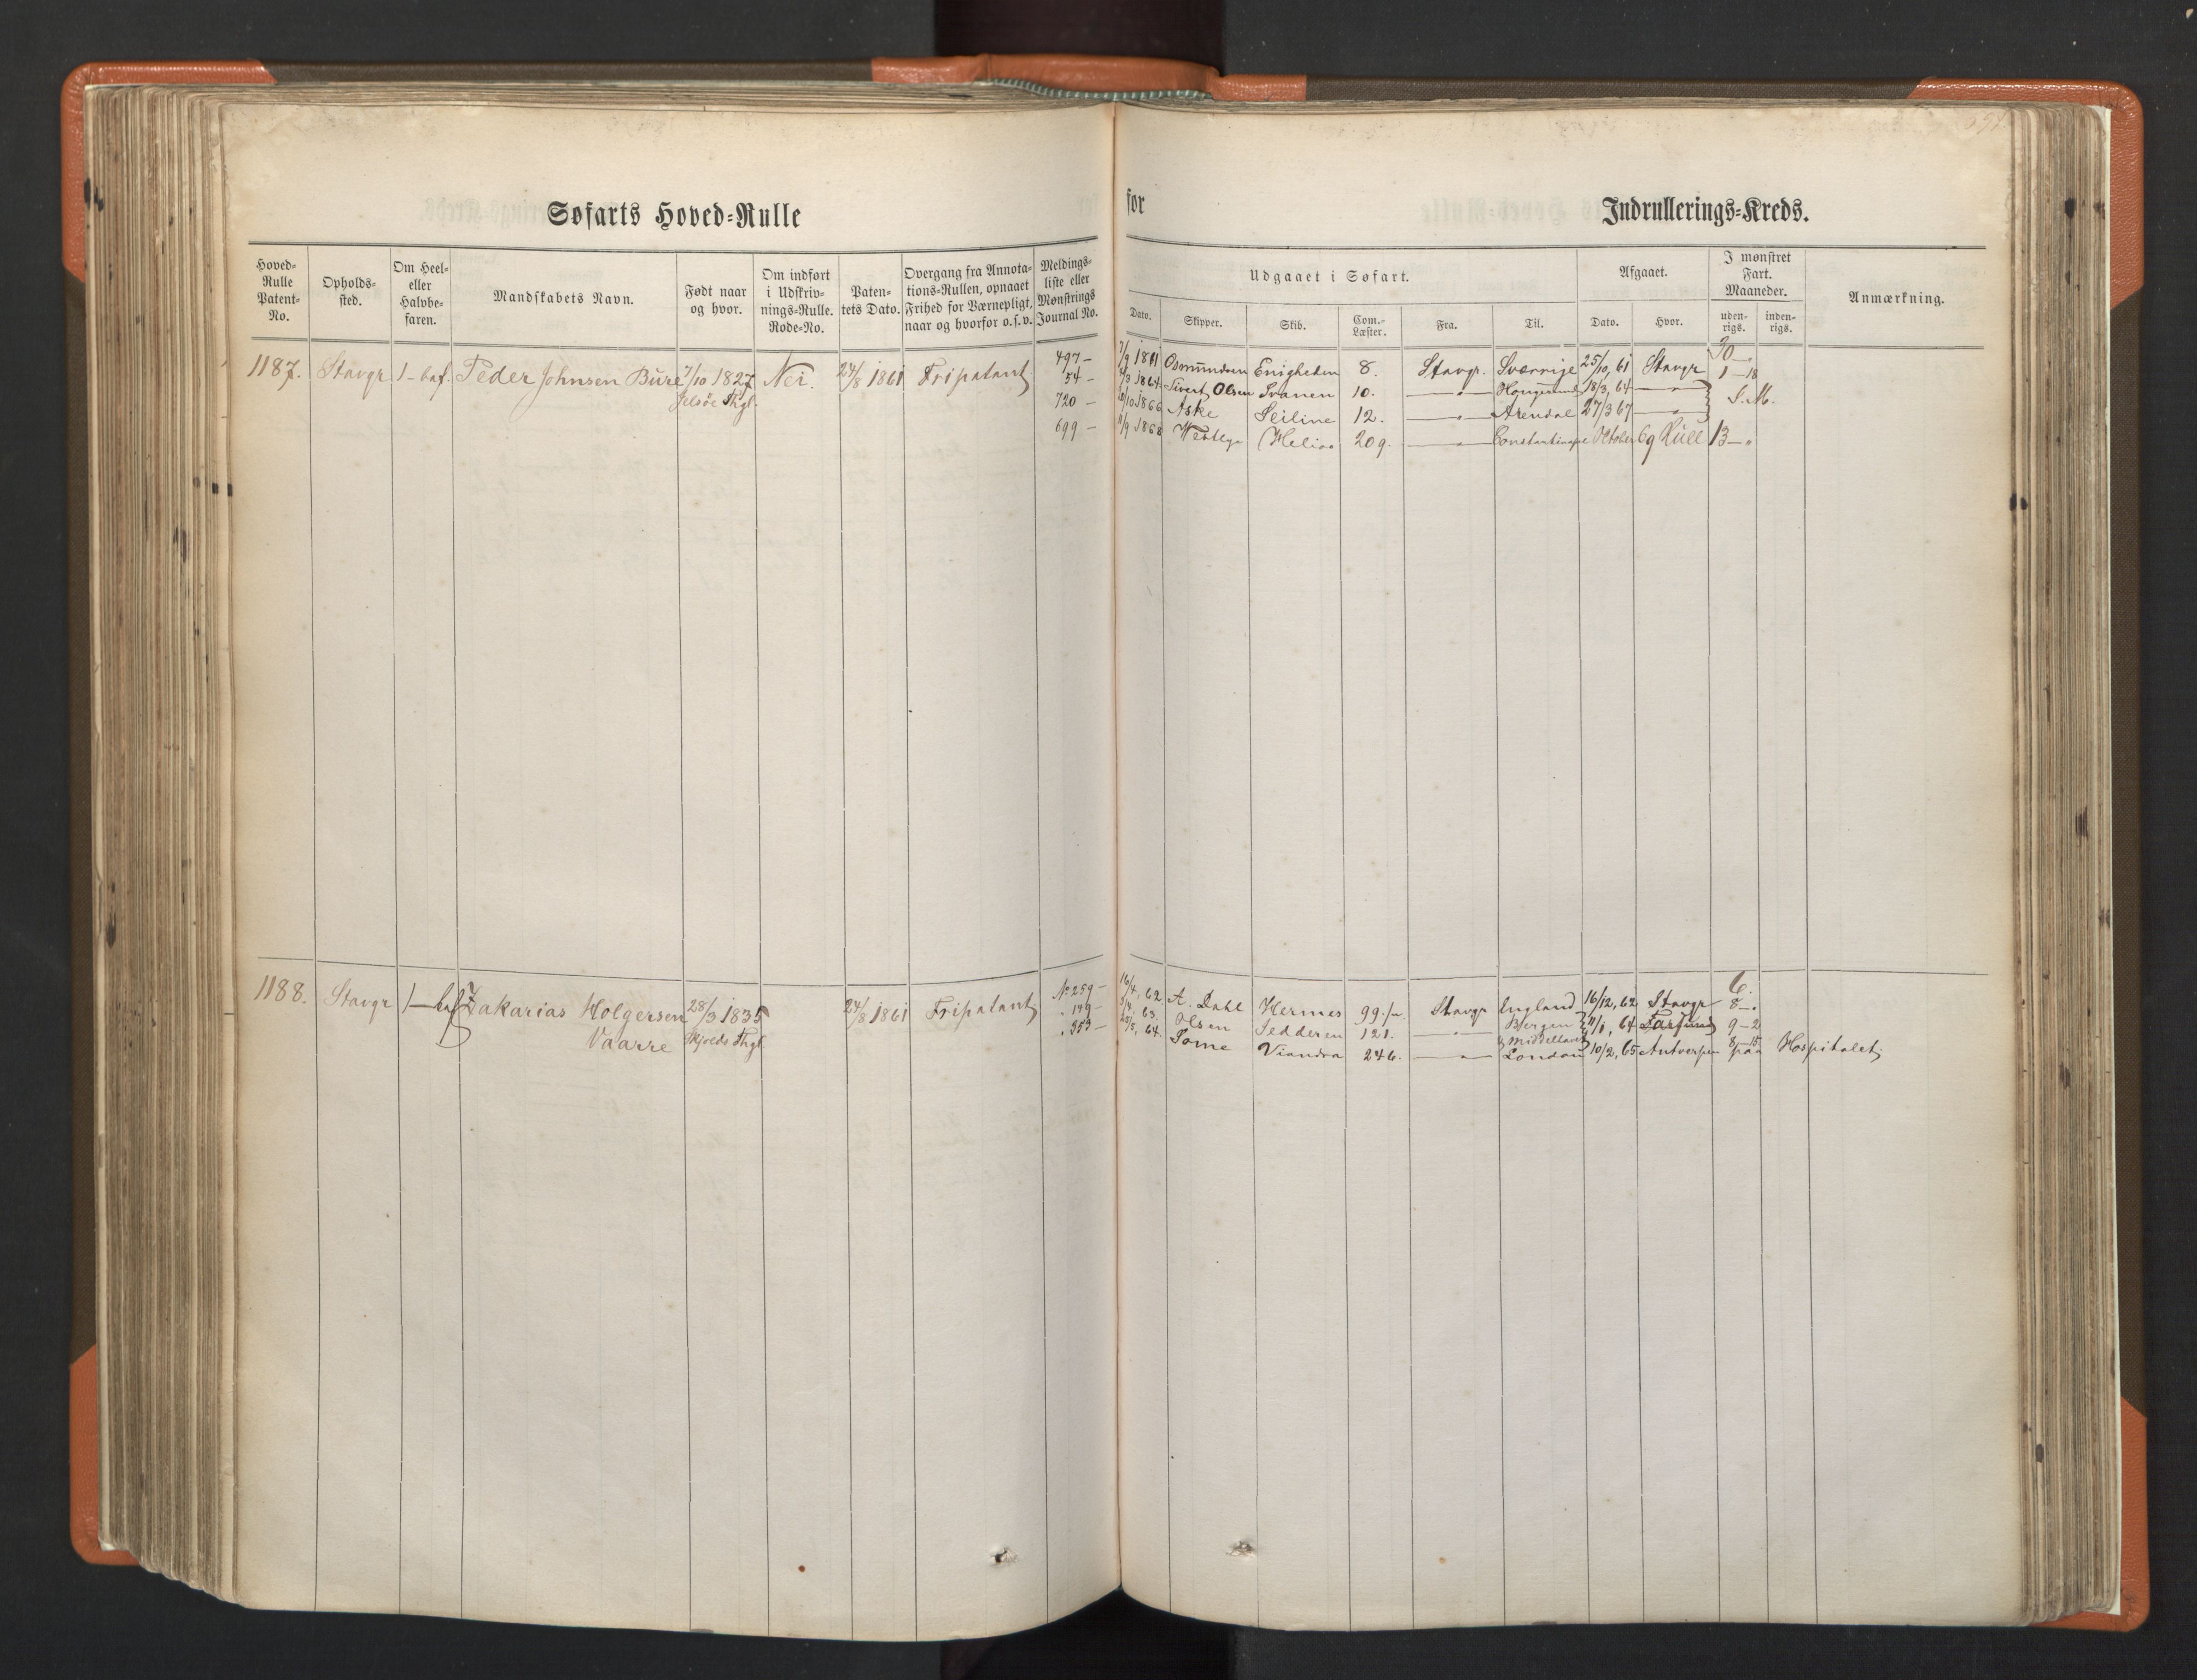 Søfarts Hoved-Rulle
for
Indrullerings-Kreds.
Hoved-Rulle Patent-No.
Opholds-sted.
Om Heel- eller Halvbe-faren.
Mandskabets Navn.
Født naar og hvor.
Om indført i Udskriv-nings-Rulle. Rode-No.
Paten-tets Dato.
Overgang fra Annota-tions-Rullen, opnaaet Frihed for Værnepligt, naar og hvorfor o.s.v.
Meldings-liste eller Mønstrings Journal No.
Udgaaet i Søfart.
Afgaaet.
I mønstret Fart. Maaneder.
Anmærkning.
Dato. Skipper. Skib. Com.-Læster. Fra. Til. Dato. Hvor. uden-rigs. inden-rigs.
1187. Stavgr 1 - baf. Peder Johnsen Bure 7/10 1827 Nei. 24/8 1861 Fripatent
Jelsöe Thgl.
497 - 7/9 1861 Osmundsen Enigheden 8. Stavgr. Sværrige 25/10, 61 Stavgr
54 - 1864 Sivert Olsen Svanen 10. — " — 18/3, 64 — " — 1 - 18
720 - 1866 Aske Seiline 12. — " — Arendal 27/3 67 — " — S.M.
699 - 11/9 1868 Helios 209. — " — October 69 Hull 13 - "
1188. Stavgr 1 - baf Zakarias Holgersen 28/3 1835 24/8 1861 Fripatent
Vaarre Skjolds Thgl.
No 259 - 16/4, 62 A. Dahl Hermes 99. Stavgr England 16/12, 62 Stavgr 8 - "
" 149 - 63. Olsen Fedderen 121. — " — Bergen & Middelhavet 11/1, 64 Farsund 9 - 2
" 353 - 64. Tome Viandra 246. — " — London 10/2, 65 Antverpen 8 - 15
paa Hospitalet